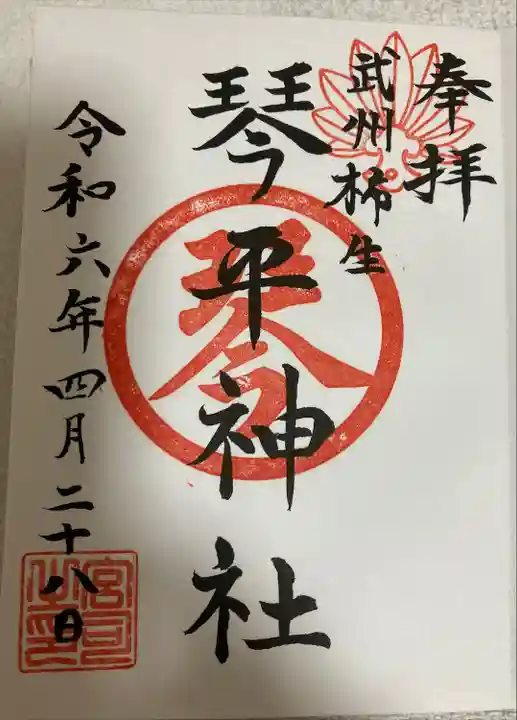 奉拝
武州柿生
琴平神社
琴
令和六年四月二十八日
宮司之印